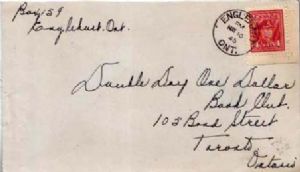 Box 159
Englehart. Ont.
ENGLEH
PM
45
ONT.
Double Day One Dollar
Book Club.
103 Bond Street
Toronto
Ontario